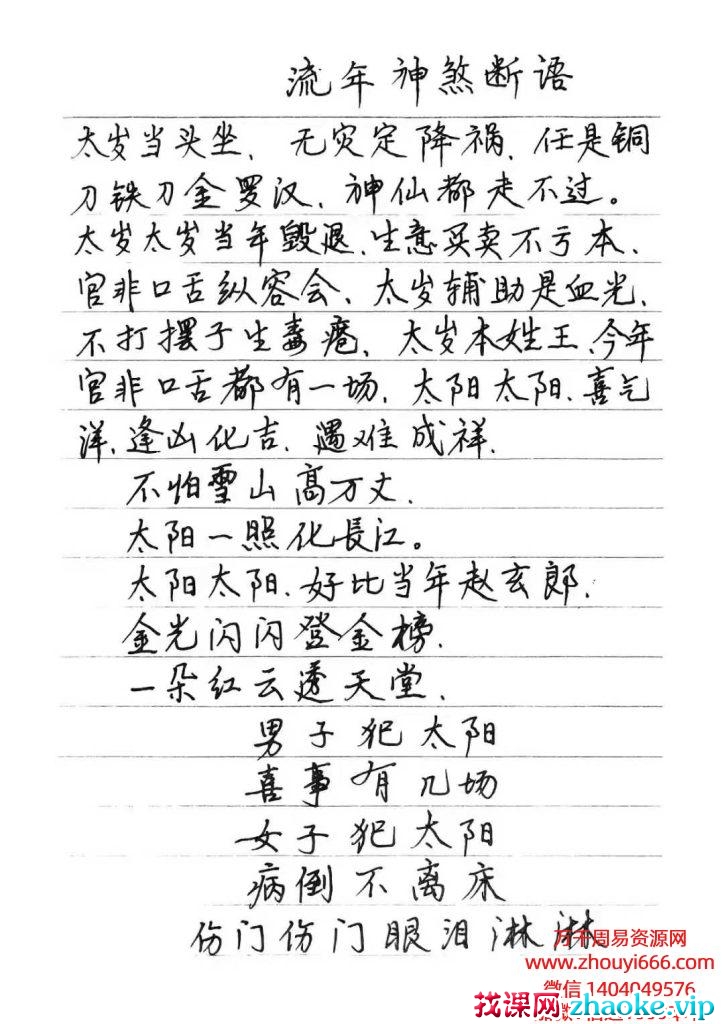 流年神煞断语
太岁当头坐、无灾定降祸、任是铜
刀铁刀金罗汉、神仙都走不过。
太岁太岁当年毁退、生意买卖不亏本、
官非口舌纵容会、太岁辅助是血光、
不打摆子生毒疮、太岁本姓王、今年
官非口舌都有一场、太阳太阳、喜气
洋、逢凶化吉、遇难成祥、
不怕雪山高万丈、
太阳一照化長江。
太阳太阳、好比当年赵玄郎、
金光闪闪登金榜、
一朵红云透天堂、
男子犯太阳
喜事有几场
女子犯太阳
病倒不离床
伤门伤门眼泪淋淋
万千周易资源网
www.zhouyi666.com
微信 1404049576
找课网zhaoke.vip